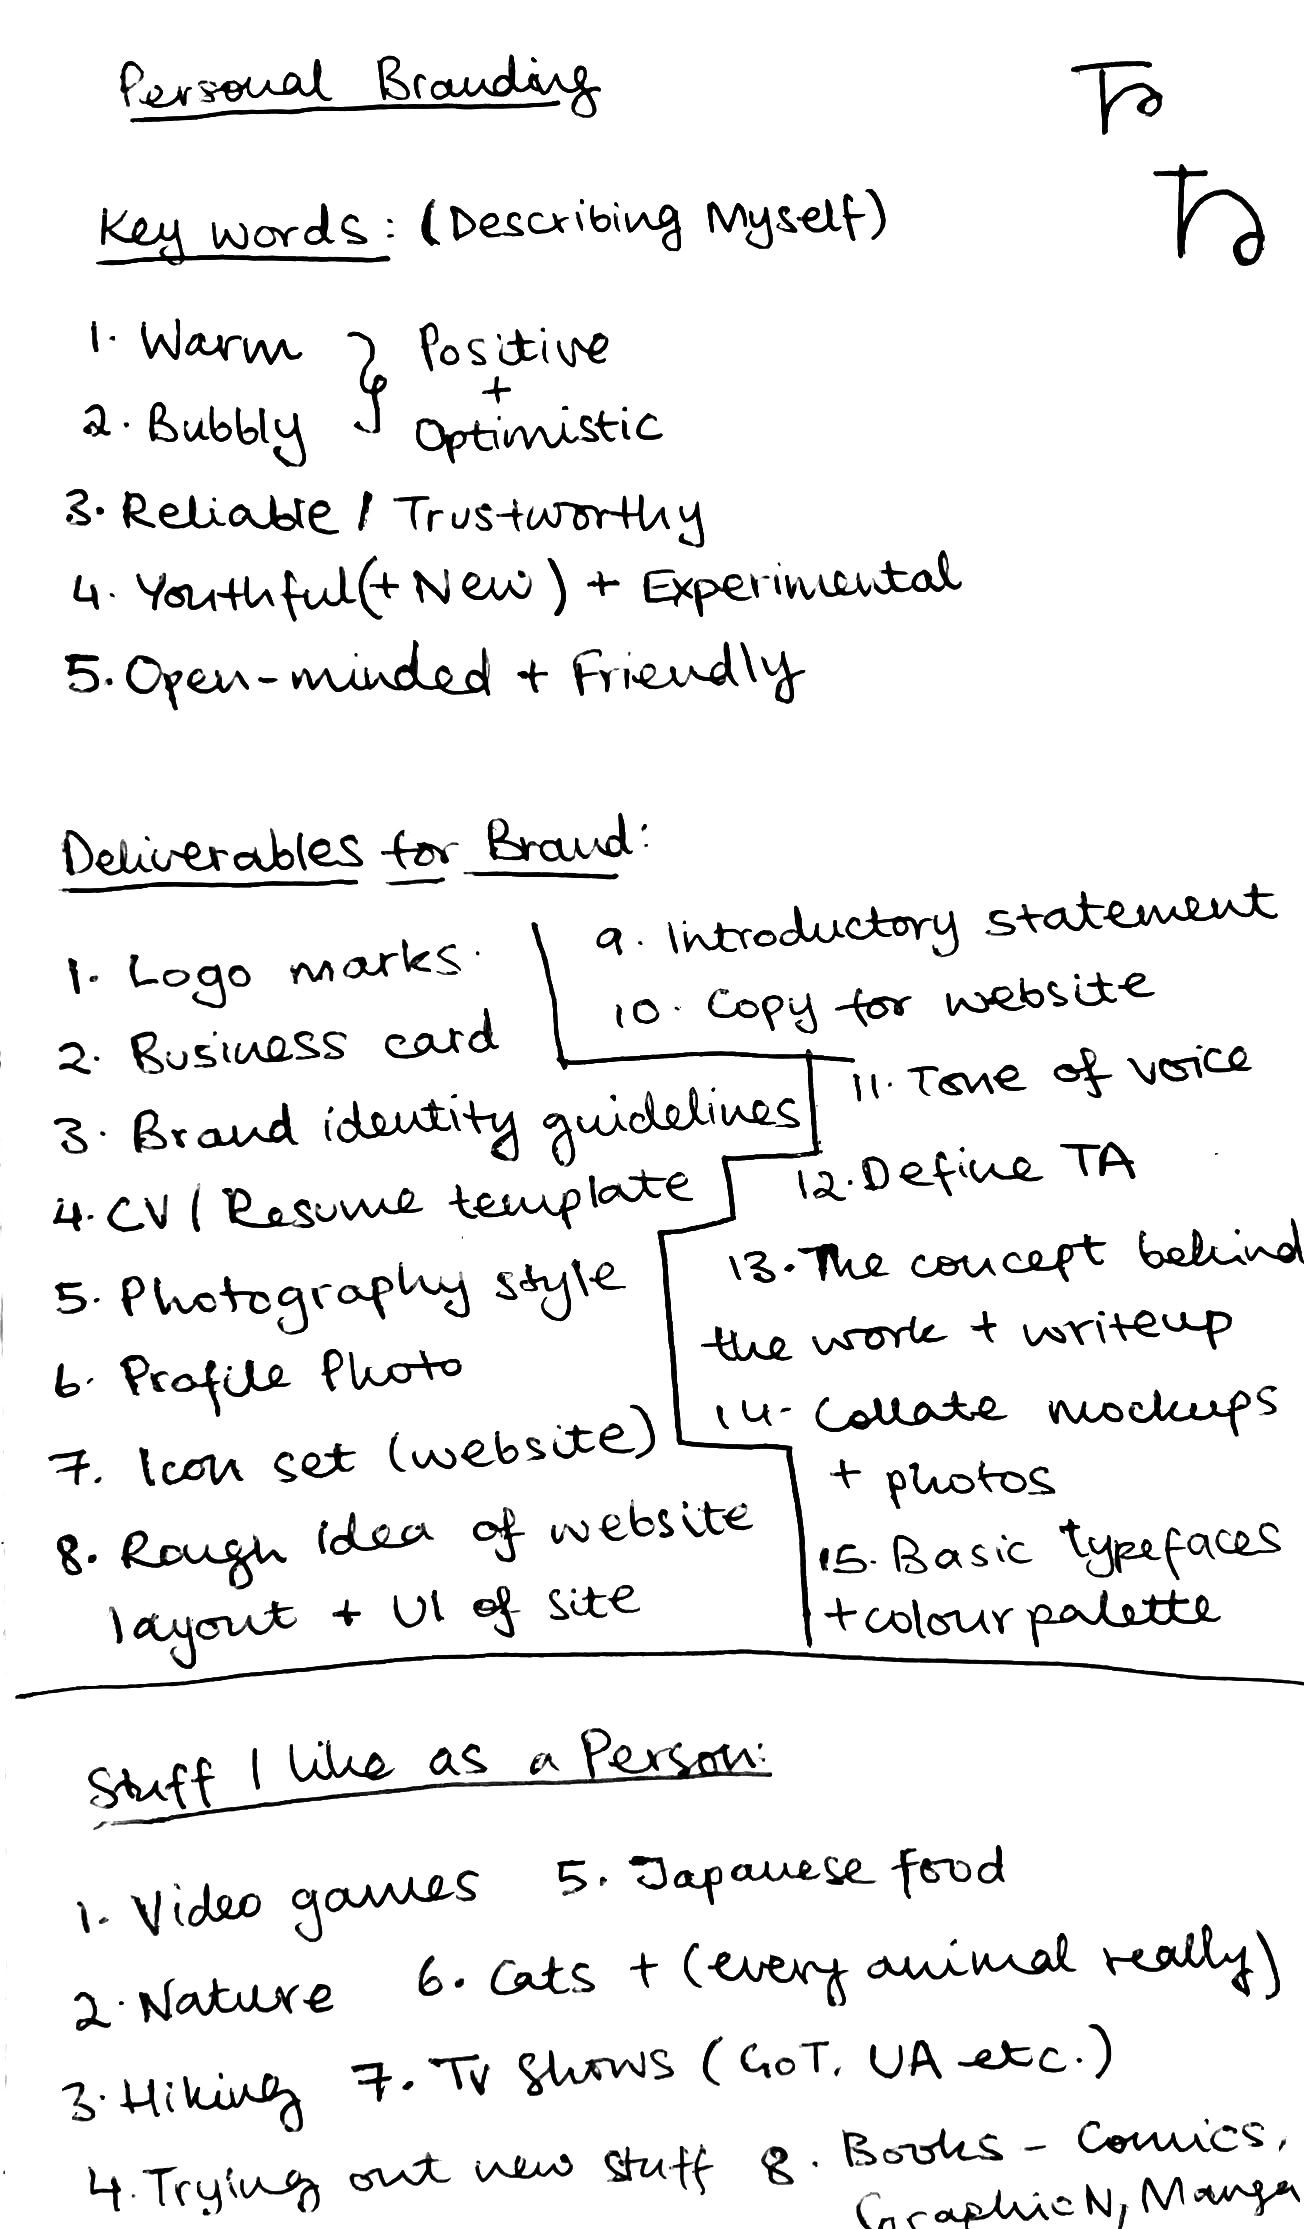 Personal Branding
Key words: (Describing Myself)
1. Warm } Positive
+
2. Bubbly Optimistic
3. Reliable / Trustworthy
4. Youthful (+ New) + Experimental
5. Open-minded + Friendly
Deliverables for Brand:
1. Logo marks.
2. Business card
3. Brand identity guidelines
4. CV / Resume template
5. Photography style
6. Profile Photo
7. Icon set (website)
8. Rough idea of website
layout + UI of site
9. Introductory statement
10. Copy for website
11. Tone of voice
12. Define TA
13. The concept behind
the work + writeup
14. Collate mockups
+ photos
15. Basic typefaces
+ colour palette
Stuff I like as a Person:
1. Video games
2. Nature
3. Hiking
4. Trying out new stuff
5. Japanese food
6. Cats + (every animal really)
7. TV Shows (GoT, UA etc.)
8. Books - Comics,
Graphic N, Manga